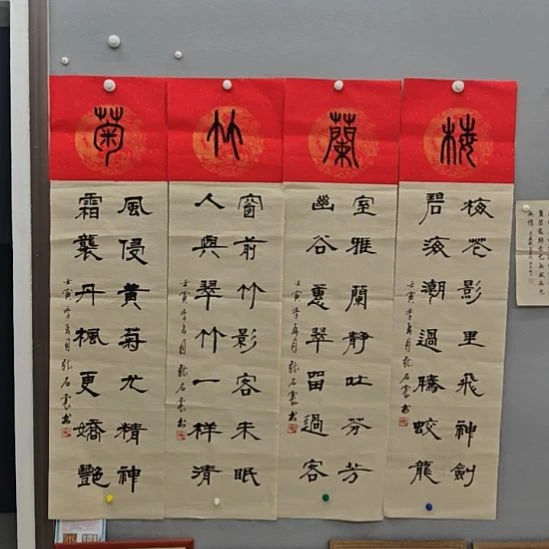 梅
梅花影里飛神劍
碧海潮過騰蛟龍
壬寅年 月張石 書
蘭
室雅蘭靜吐芬芳
幽谷蕙翠留過客
壬寅年 月張石 書
竹
窗前竹影客未眠
人與翠竹一样清
壬寅年 月張石 書
菊
風侵黃菊尤精神
霜襲丹楓更嬌艷
壬寅年 月張石 書